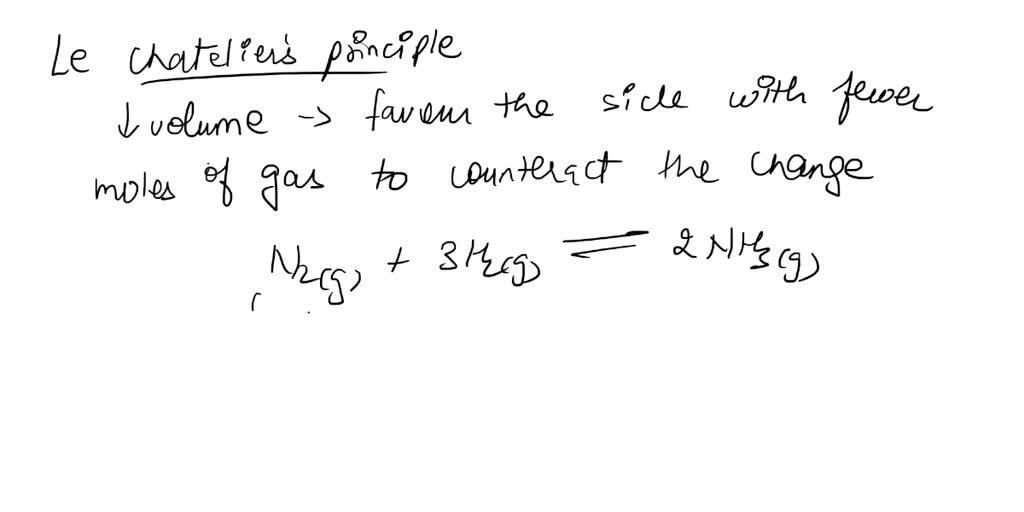 Le Chatelier's principle
↓ volume → favour the side with fewer
moles of gas to counteract the change
N2(g) + 3H2(g) ⇌ 2NH3(g)